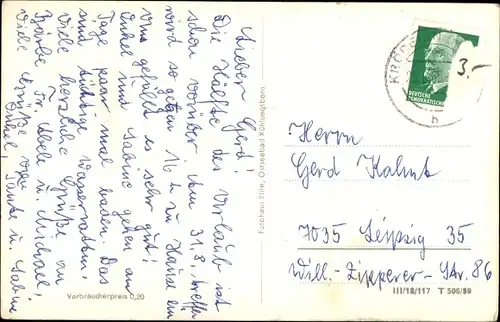 Lieber Gerd!
Die Hälfte des Urlaub ist
schon vorüber. Am 31.8. treffen
wird so gegen 16 h zu Hause ein
uns gefällt es sehr gut.
Onkel und Sabine gehen am
Tage paar mal baden. Das
sind richtige Wasserratten.
Viele herzliche Grüße an
Bärbel, Fr. u. Michael,
viele Grüße von
Onkel, Tante u. Sabine
Fotohaus Ellre, Ostseebad Kühlungsborn
Verbraucherpreis 0,20
DEUTSCHE
DEMOKRATISCHE
3.-
h
Herrn
Gerd Kalnt
7035 Leipzig 35
Will.-Zipperer-Str. 86
III/18/117 T 506/59